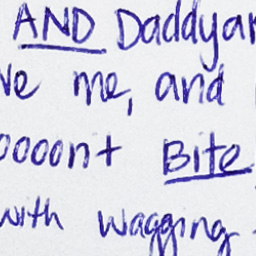 AND Daddyar
ve me, and
oooon+ Bite
with wagging